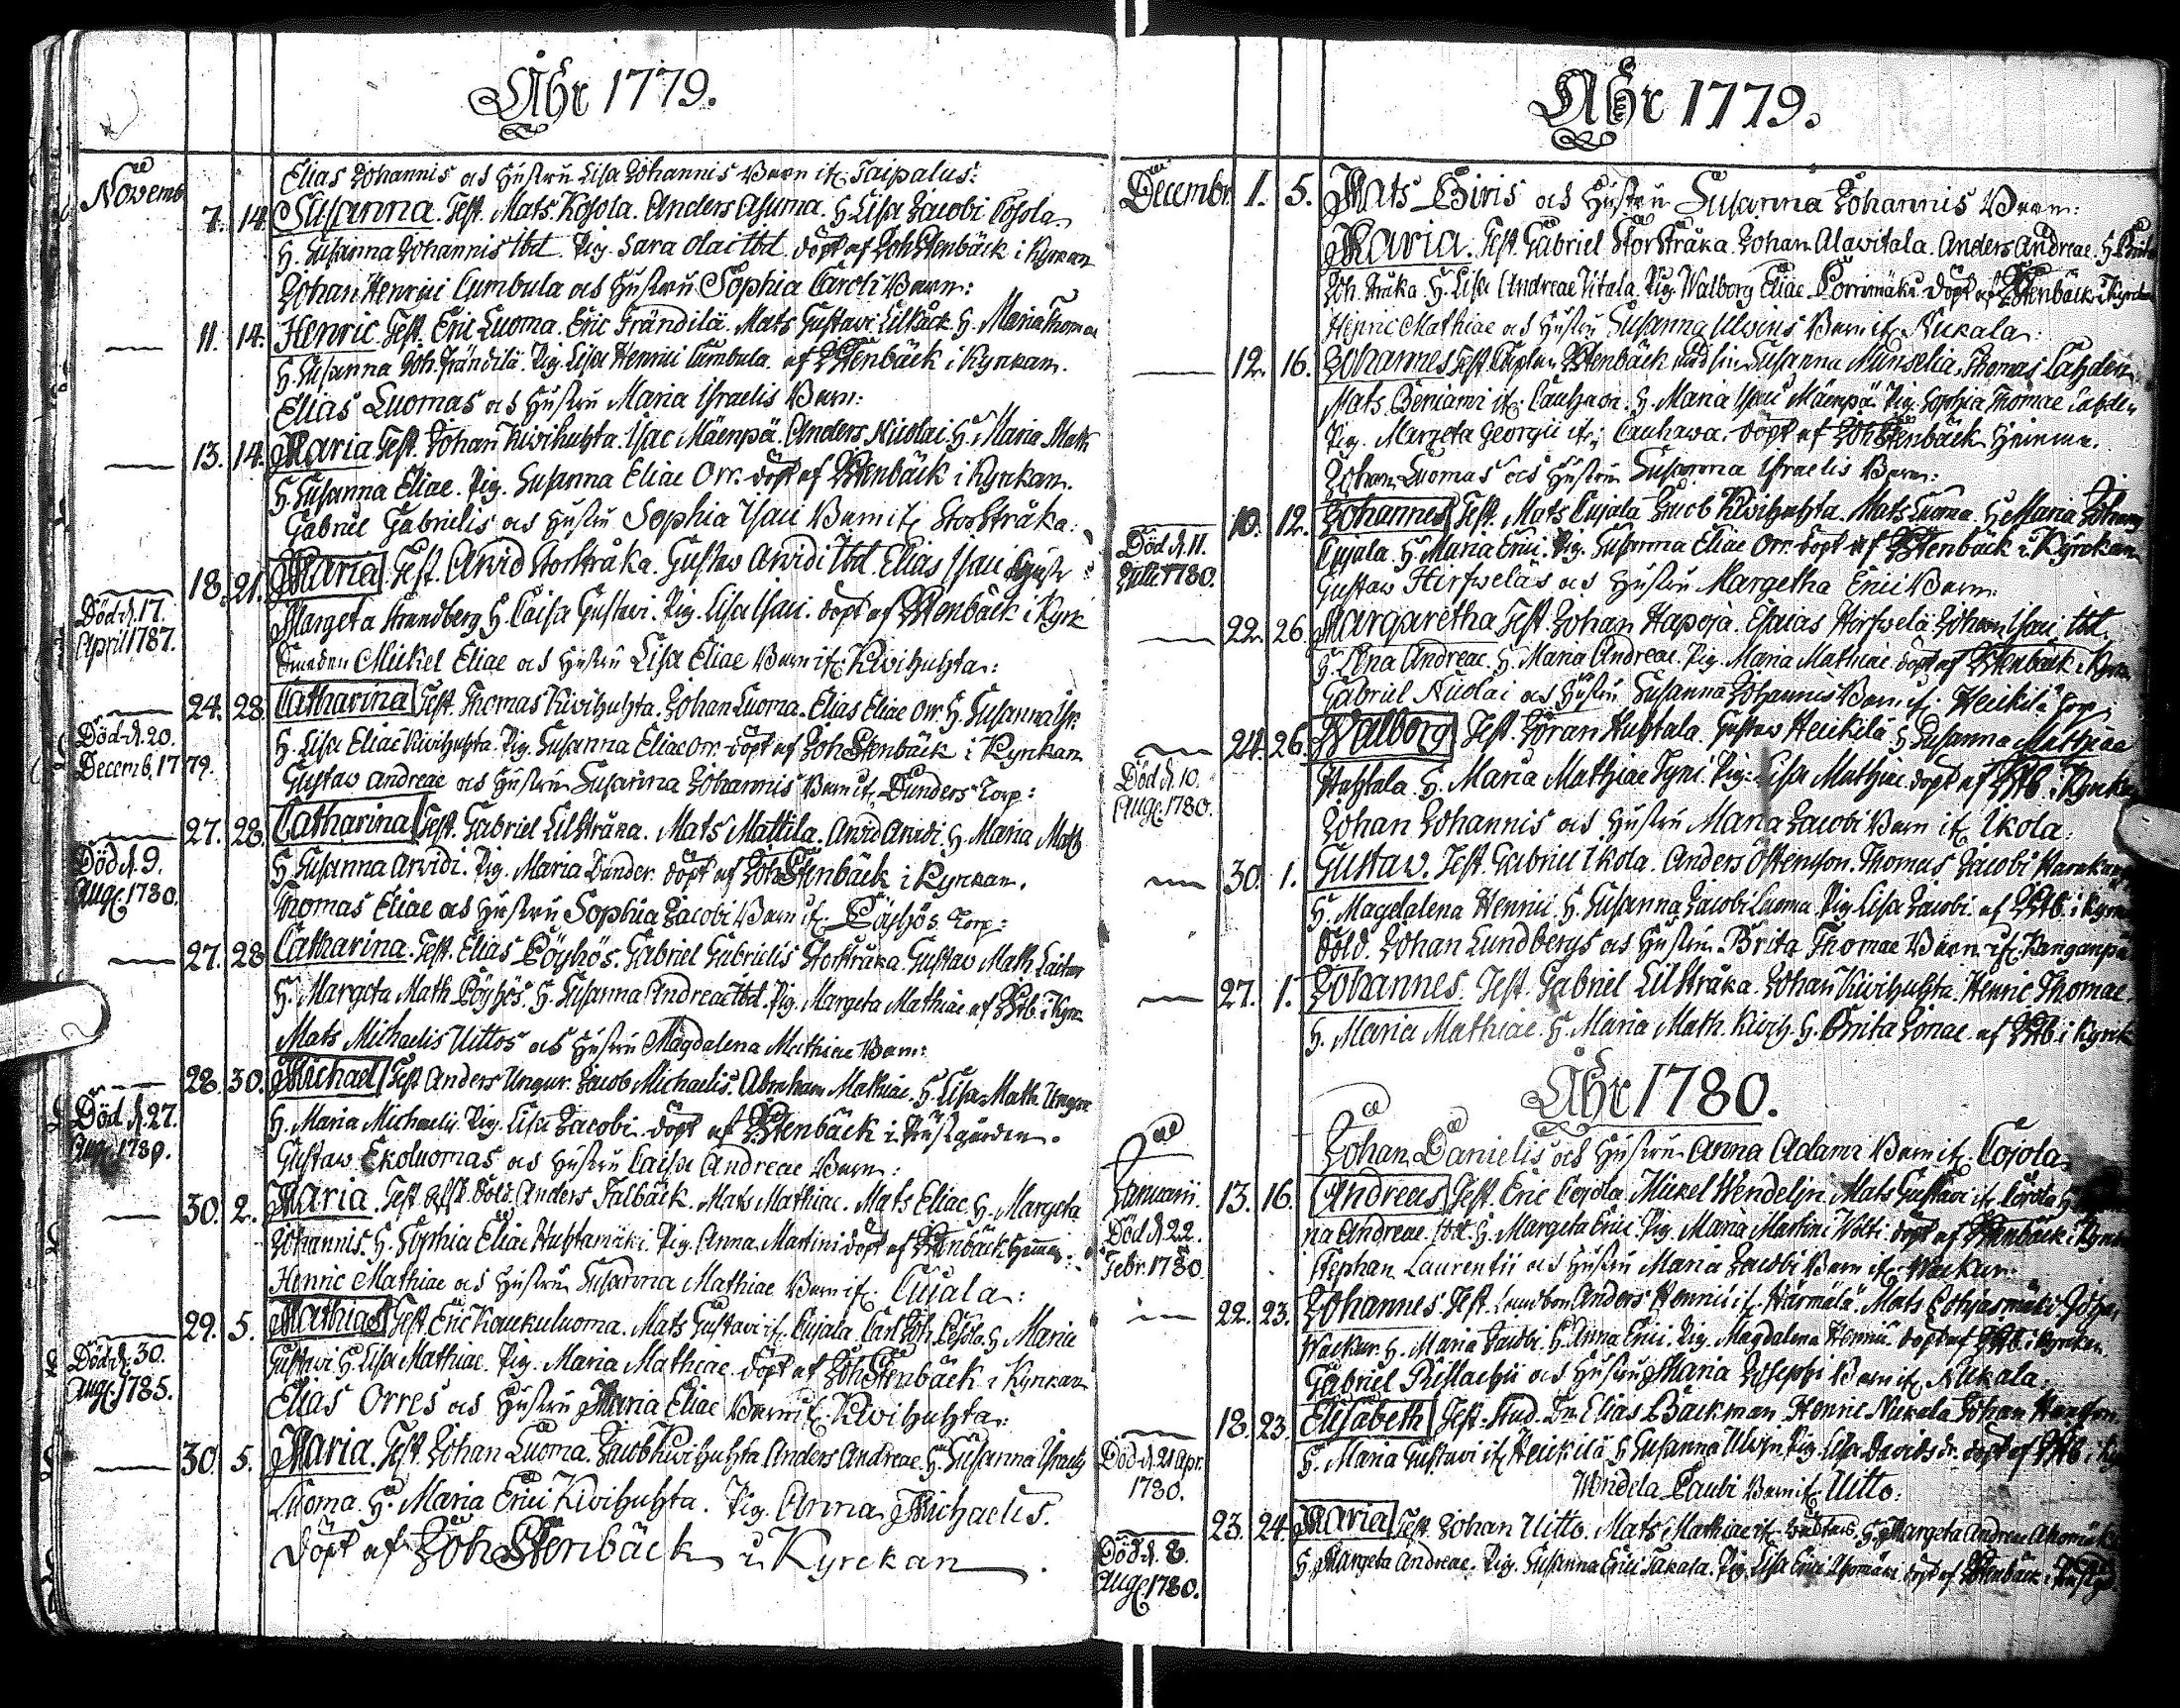 Åhr 1779.
Novemb
Elias Johannis och Hustru Lisa Johannis Barn if. Taipalus:
7. 14. Susanna. Test. Mats Kojola. Anders Asuma. H. Lisa Jacobi Cojola
H. Susanna Johannis Ibd. Pig. Sara Olai Ibd. döpt af Joh Stenbäck i Kyrkan
Johan Henrici Cumbula och Hustru Sophia Caroli Barn:
11. 14. Henric. Test. Eric Luoma. Eric Frändilä. Mats Gustavi Lilkåck H. Maria Thomae
H. Susanna Joh. Frändilä. Pig. Lisa Henrici Cumbula. af JStenbäck i Kyrkan.
Elias Luomas och Hustru Maria Israelis Barn:
13. 14. Maria Test. Johan Kivihuhta. Isac Mäenpä. Anders Nicolai. H. Maria Math
H. Susanna Eliae. Pig. Susanna Eliae Orr. döpt af JStenbäck i Kyrkan.
Gabriel Gabrielis och Hustru Sophia Isaci Barn if. Storstråka:
18. 21. Maria. Test. Arvid Storstråka. Gustav Arvidi Ibd. Elias Isaci
Död d. 17. April 1787.
Margeta Strandberg H. Caisa Gustavi. Pig. Lisa Isaci. döpt af JStenbäck i Kyrk
Smeden Mickel Eliae och Hustru Lisa Eliae Barn if. Kivihuhta:
24. 28. Catharina Test. Thomas Kivihuhta. Johan Luoma. Elias Eliae Orr. H. Susanna Isr.
Död d. 20. Decemb. 1779.
H. Lisa Eliae Kivihuhta. Pig. Susanna Eliae Orr. döpt af Joh Stenbäck i Kyrkan
Gustaw Andreae och Hustru Susanna Johannis Barn if. Dunders Torp:
27. 28. Catharina Test. Gabriel Lilstråka. Mats Mattila. Arvid Arvidi. H. Maria Mats
Död d. 9. Aug. 1780.
H. Susanna Arvidi. Pig. Maria Dunder. döpt af Joh Stenbäck i Kyrkan.
Thomas Eliae och Hustru Sophia Jacobi Barn if. Pöyhös Torp:
27. 28 Catharina. Test. Elias Pöyhös. Gabriel Gabrielis Storstråka. Gustav Math.
H. Margeta Math. Pöyhös. H. Susanna Andreae Ibd. Pig. Margeta Mathiae af JStb. i Kyrc
Mats Michaelis Uittos och Hustru Magdalena Mathiae Barn:
28. 30. Michael Test. Anders Ungur. Jacob Michaelis. Abraham Mathiae. H. Lisa Math. Ungur
Död d. 27. 1789.
H. Maria Michaelis. Pig. Lisa Jacobi. döpt af JStenbäck i Prästgården.
Gustaw Ekoluomas och Hustru Caisa Andreae Barn:
30. 2. Maria. Test. Sold. Anders Falbäck. Mats Mathiae. Mats Eliae. H. Margeta
Johannis. H. Sophia Eliae Huhtamäki. Pig. Anna Martini döpt af JStenbäck
Henric Mathiae och Hustru Susanna Mathiae Barn if. Cujala:
29. 5. Mathias Test. Eric Kaukuluoma. Mats Gustavi if. Cujala. Carl Joh. Cojola. H. Maria
Död d. 30. Aug. 1785.
Gustavi H. Lisa Mathiae. Pig. Maria Mathiae. döpt af Joh Stenbäck i Kyrkan
Elias Orres och Hustru Maria Eliae Barn if. Kivihuhta:
30. 5. Maria. Test. Johan Luoma. Jacob Kivihuhta Anders Andreae. H. Susanna Israelis
Luoma. H. Maria Erici Kivihuhta. Pig. Anna Michaelis.
döpt af Joh Stenbäck i Kyrckan.
Åhr 1779.
Decembr. 1. 5. Mats Biris och Hustru Susanna Johannis Barn:
Maria. Test. Gabriel Storstråka. Johan Alavitala. Anders Andreae. H. Brita
Joh. Stråka. H. Lisa Andreae Vitala. Pig. Walborg Eliae Porrimäki döpt af JStenbäck i Kyrckan
Henric Mathiae och Hustru Susanna Ulvins Barn if. Nukala:
12. 16. Johannes Test. Caplan JStenbäck Susanna Munselia. Thomas Lahden
Mats Beniami if. Cauhava. H. Maria Isaci Mäenpä. Pig. Sophia Thomae
Pig. Margeta Georgii if. Cauhawa. döpt af Joh Stenbäck Hemma.
Johan Luomas och Hustru Susanna Israelis Barn:
10. 12. Johannes Test. Mats Cujala. Jacob Kivihuhta. Mats Luoma. H. Maria
Död d. 11. Julii 1780.
Cujala. H. Maria Erici. Pig. Susanna Eliae Orr. döpt af JStenbäck i Kyrckan
Gustaw Hirfwelas och Hustru Margetha Erici Barn
22. 26. Margaretha Test. Johan Hapoja. Esaias Hirfwelä Johan Isaci Ibd.
H. Lena Andreae. H. Maria Andreae. Pig. Maria Mathiae döpt af JStenbäck i Kyrc
Gabriel Nicolai och Hustru Susanna Johannis Barn if. Heickilä Torp:
24. 26. Walborg Test. Jöran Huhtala. Gustav Heickilä H. Susanna Mathiae
Död d. 10. Aug. 1780.
Huhtala. H. Maria Mathiae Tyni. Pig. Lisa Mathiae döpt af JStb. i Kyrckan
Johan Johannis och Hustru Maria Jacobi Barn if. Ikola:
30. 1. Gustaw. Test. Gabriel Ikola. Anders Östenson. Thomas Jacobi
H. Magdalena Henrici. H. Susanna Jacobi Luoma Pig. Lisa Jacobi. af JStb. i Kyrc
Sold. Johan Lundbergs och Hustru Brita Thomae Barn if. Kanganpä
27. 1. Johannes. Test. Gabriel Lilstråka. Johan Kivihuhta. Henric Thomae.
H. Maria Mathiae. H. Maria Math. Kivih. H. Brita Jonae. af JStb. i Kyrck
Åhr 1780.
Johan Danielis och Hustru Anna Adami Barn if. Cojola
Januarii. 13. 16. Andreas Test. Eric Cojola. Mickel Wendelin. Mats Gustavi if. Cojola
Död d. 22. Febr. 1780
na Andreae. Ibd. H. Margeta Erici. Pig. Maria Martini Wolti. döpt af JStenbäck i Kyrck
Stephan Laurentii och Hustru Maria Jacobi Barn if. Wackur:
22. 23. Johannes Test. Anders Henrici if. Härmälä. Mats Pohjasmäki
Wackur. H. Maria Jacobi. H. Anna Erici. Pig. Magdalena Henrici. döpt af JStb. i Kyrckan.
Gabriel Ristachii och Hustru Maria Josephi Barn if. Nukala:
18. 23. Elisabeth Test. Stud. Dn Elias Backman. Henric Nukala Johan
Död d. 21 Apr. 1780.
H. Maria Gustavi if. Heickilä H. Susanna Ulvin Pig. Lisa Davids dr. döpt af JStb. i
Wendela Pauli Barn if. Uitto:
23. 24. Maria Test. Johan Uitto. Mats Mathiae if. H. Margeta Andreae
Död d. 8. Aug. 1780.
H. Margeta Andreae. Pig. Susanna Erici Takala. Pig. Lisa Erici döpt af JStenbäck i